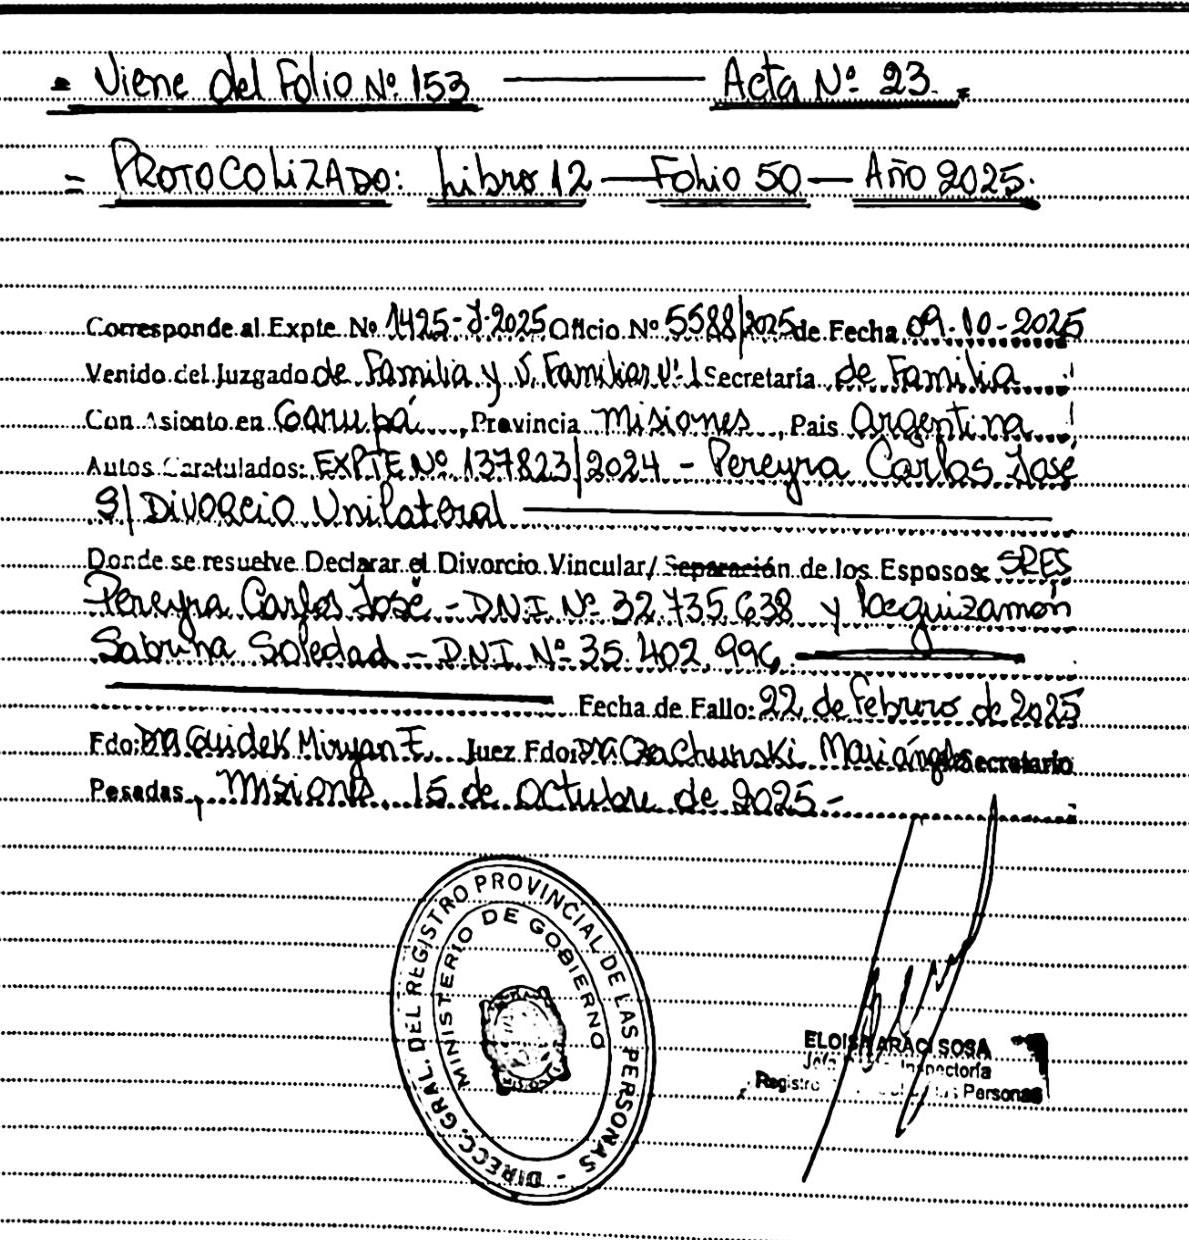 = Viene del Folio Nº 153 ——— Acta Nº 23. =
= PROTOCOLIZADO: Libro 12 — Folio 50 — Año 2025.
Corresponde al Expte Nº 1425-J-2025 Oficio Nº 5588/2025 de Fecha 09-10-2025
Venido del Juzgado de Familia y V. Familiar Nº 1 Secretaría de Familia
Con Asiento en Garupá, Provincia Misiones, Pais Argentina
Autos Caratulados: EXPTE Nº 137823/2024 - Pereyra Carlos José
S/ Divorcio Unilateral
Donde se resuelve Declarar el Divorcio Vincular/ Separación de los Esposos: SRES
Pereyra Carlos José - DNI Nº 32.735.638 y Leguizamón
Sabrina Soledad - DNI Nº 35.402.996
Fecha de Fallo: 22 de Febrero de 2025
Fdo: Dra Guidek Miryan E. Juez Fdo: Dra Czachurski Mariángeles Secretario
Posadas, Misiones, 15 de Octubre de 2025-
DIRECC. GRAL. DEL REGISTRO PROVINCIAL DE LAS PERSONAS -
MINISTERIO DE GOBIERNO
ELOISA ARACI SOSA
Inspectoría
Registro Personas